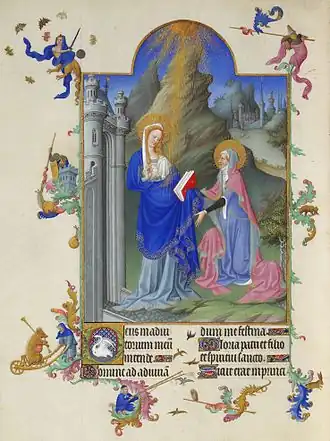 Deus in adiu
torium meū
intende
Domine ad adiuuā
dum me festina
Gloria patri et filio
et spiritui sancto
Sicut erat in princi